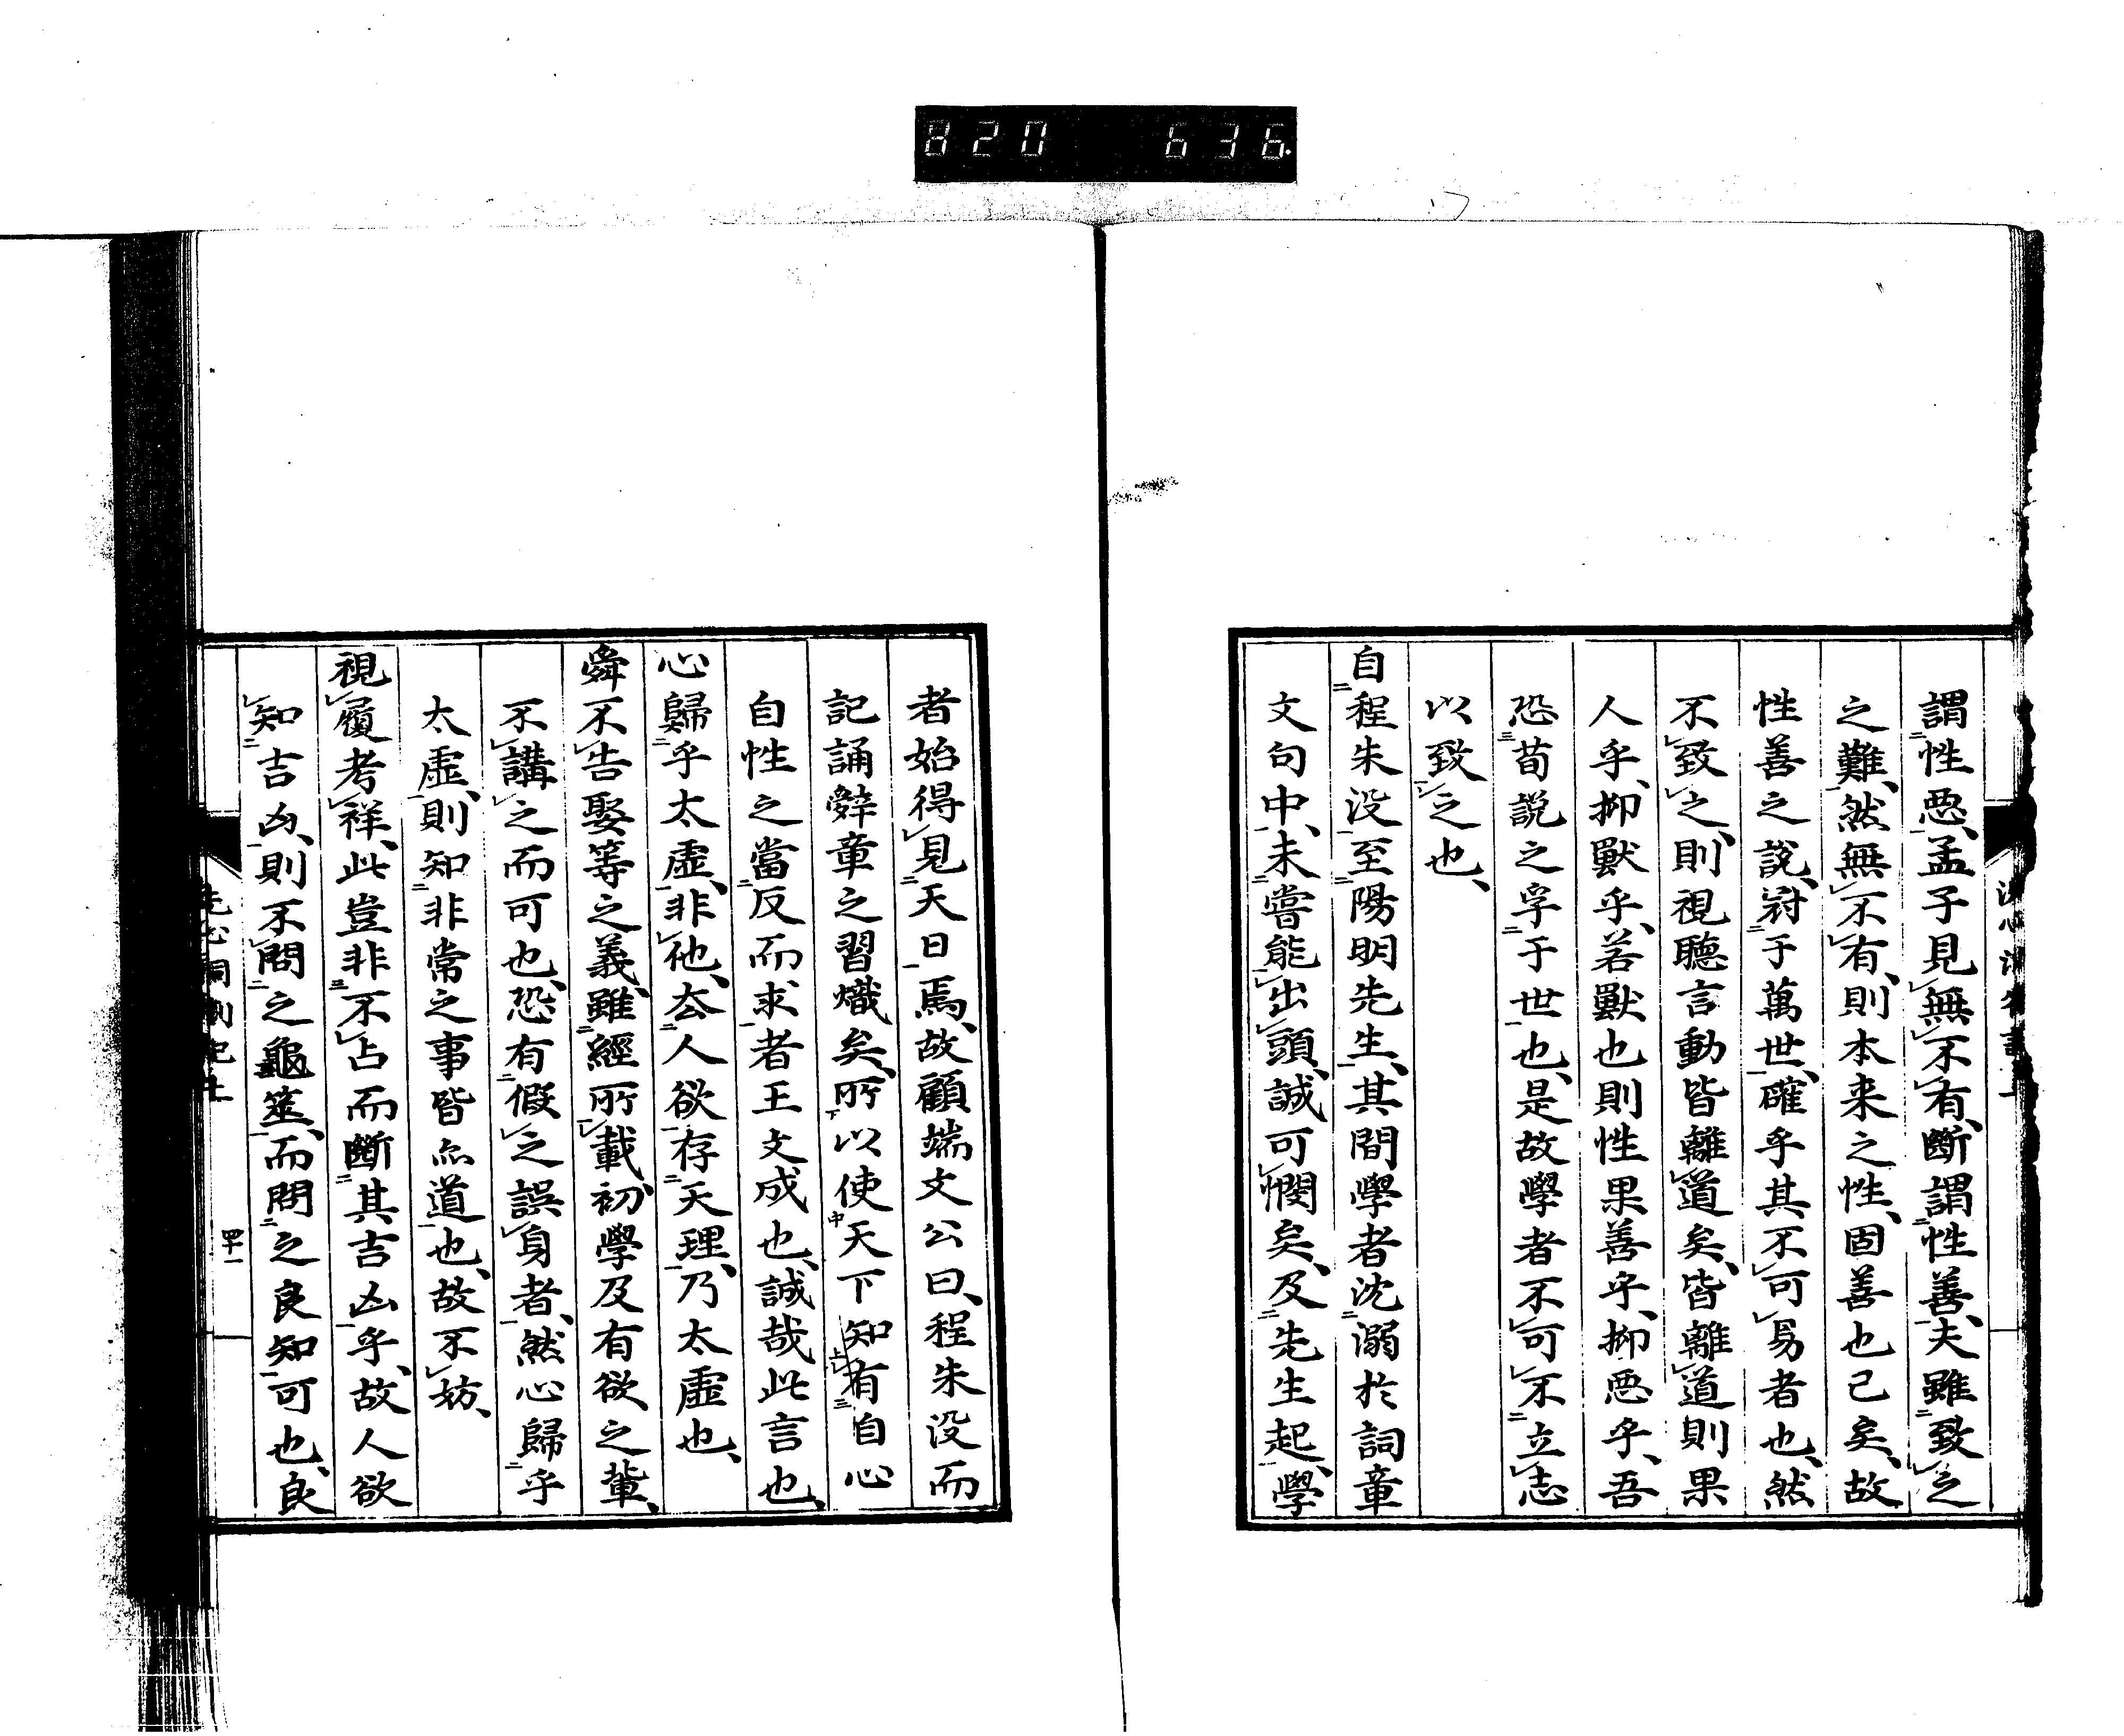 820 636
謂性惡、孟子見無不有、斷謂性善、夫雖致之
之難、然無不有、則本来之性、固善也已矣、故
性善之說、對于萬世、確乎其不可易者也、然
不致之、則視聽言動皆離道矣、皆離道則果
人乎、抑獸乎、若獸也則性果善乎、抑惡乎、吾
恐荀說之孚于世也、是故學者不可不立志
以致之也、
自程朱没至陽明先生、其間學者沈溺於詞章
文句中、未嘗能出頭、誠可憫矣、及先生起、學
者始得見天日焉、故顧端文公曰、程朱没而
記誦辭章之習熾矣、所以使天下知有自心
自性之當反而求者王文成也、誠哉此言也、
心歸乎太虛、非他、去人欲存天理、乃太虛也、
舜不告娶等之義、雖經所載、初學及有欲之輩、
不講之而可也、恐有假之誤身者、然心歸乎
太虛、則知非常之事皆亦道也、故不妨、
視履考祥、此豈非不占而斷其吉凶乎、故人欲
知吉凶、則不問之龜筮、而問之良知可也、良
洗心洞劄記上
四十一